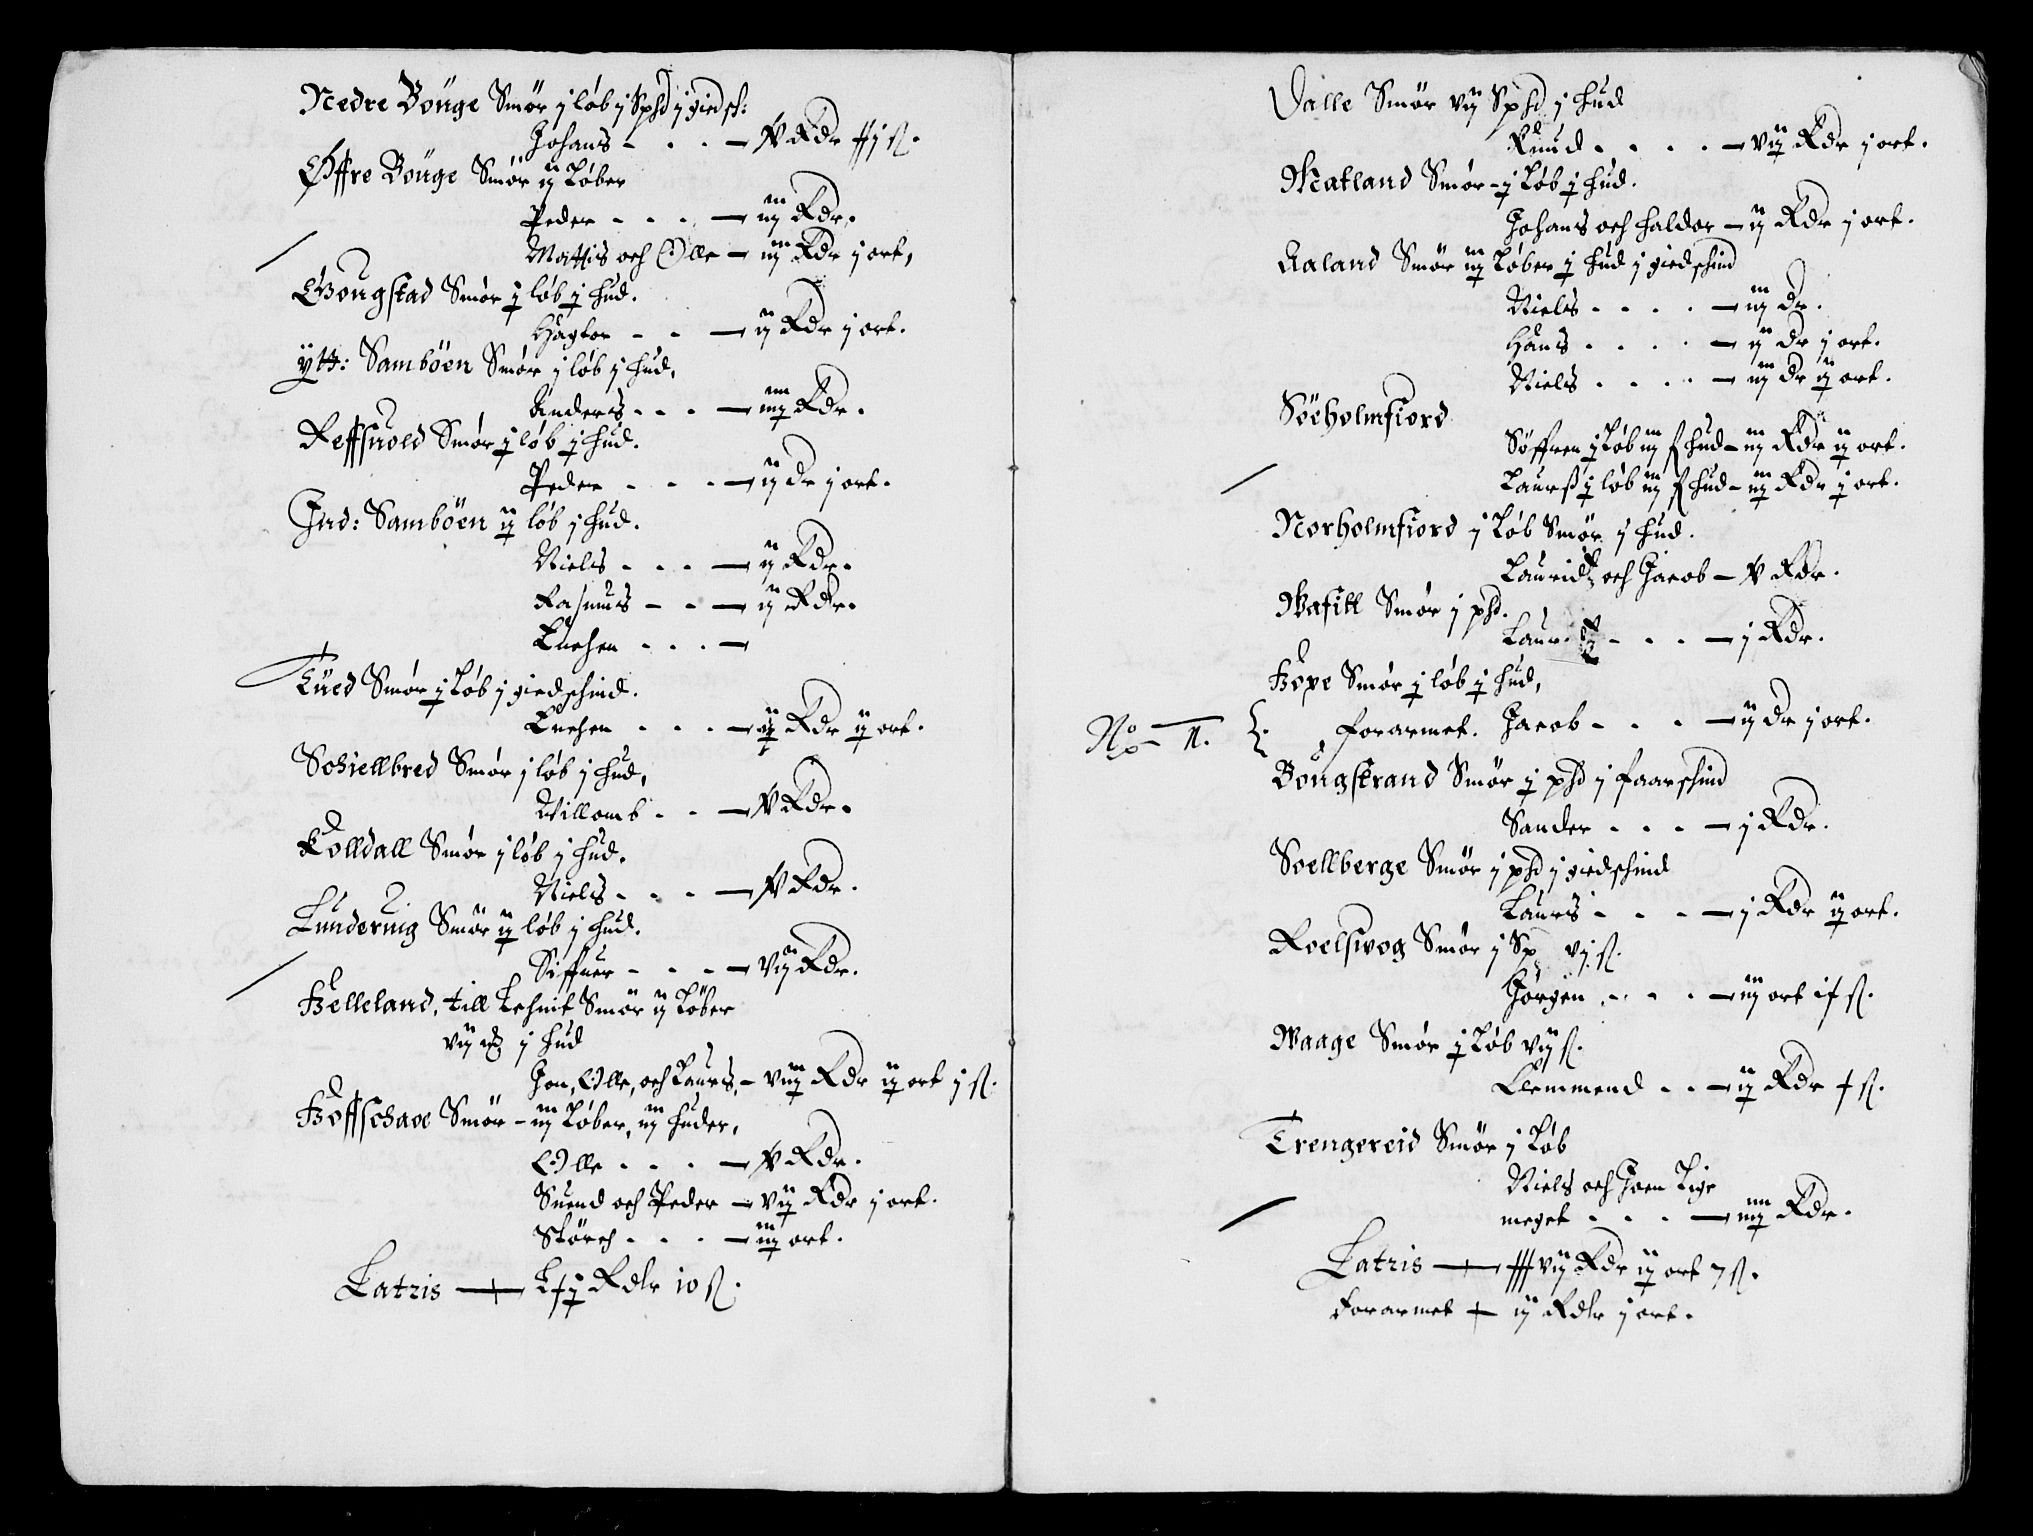 Nedre Bouge Smör j löb j Spd j giedsk:
Johans - . . - V Rdr
Øffre Bouge Smör ij Löber
Peder - . . - iij Rdr.
Mattis och Olle - iij Rdr j ort,
Gougstad Smör j löb j hud.
- . - ij Rdr j ort.
ytt: Samböen Smör j löb j hud,
Anders . . . - iiij Rdr.
Reffsuold Smör j löb j hud.
Peder . . . - ij dr j ort.
Ind: Samböen ij löb j hud.
Niels . . . - ij Rdr.
Rasmus - . - ij Rdr.
Enchen . . . -
Tued Smör j Löb j giedschind.
Enchen . . . - ij Rdr ij ort.
Schiellbred Smör j löb j hud,
Villomb . . - V Rdr.
Kolldall Smör j löb j hud.
Niels . . . - V Rdr.
Lunderuig Smör ij löb j hud.
Siffuer - . . - Vij Rdr.
Helleland, till Lehnit Smör ij Löber
vij j hud
Jon, Olle, och Laurs, - Viij Rdr ij ort j ß.
Hoffschaoe Smör - iij Löber, iij huder,
Olle . . . - V Rdr.
Suend och Peder - Vij Rdr j ort.
Störch . . . - iij ort.
Latris - Rdlr 10 ß.
Valle Smör vij Spd j hud
Knud . . . . - Vij Rdr j ort.
Matland Smör - j Löb j hud.
Johans och haldor - ij Rdr j ort.
Aaland Smör iij Löber j hud j giedschind
Niels . . . . - iij dr.
Hans . . . . - ij dr j ort.
Niels . . . . - iij dr ij ort.
Söeholmfiord
Söffren j Löb iij hud - iij Rdr ij ort.
Laurß j löb iij hud - iij Rdr j ort.
Norholmfiord j Löb Smör j hud.
Lauridtz och Jacob - V Rdr.
Smör j pd.
- . . - j Rdr.
Hope Smör j löb j hud,
No - 11. forarmet. Jacob - . . - ij dr j ort.
Bougstrand Smör j pd j faarschind
Sander . . . - j Rdr.
Soellberge Smör j pd j giedschind
Laurs . . . - j Rdr ij ort.
Roelsvog Smör j Sp vj ß.
Jörgen . . . - iij ort
Waage Smör j Löb vij ß.
Clemmend . . - ij Rdr
Trengereid Smör j Löb
Niels och Joen Lige
meget . . . - iiij Rdr.
Latris - Rdr ij ort 7 ß.
forarmet - ij Rdlr j ort.